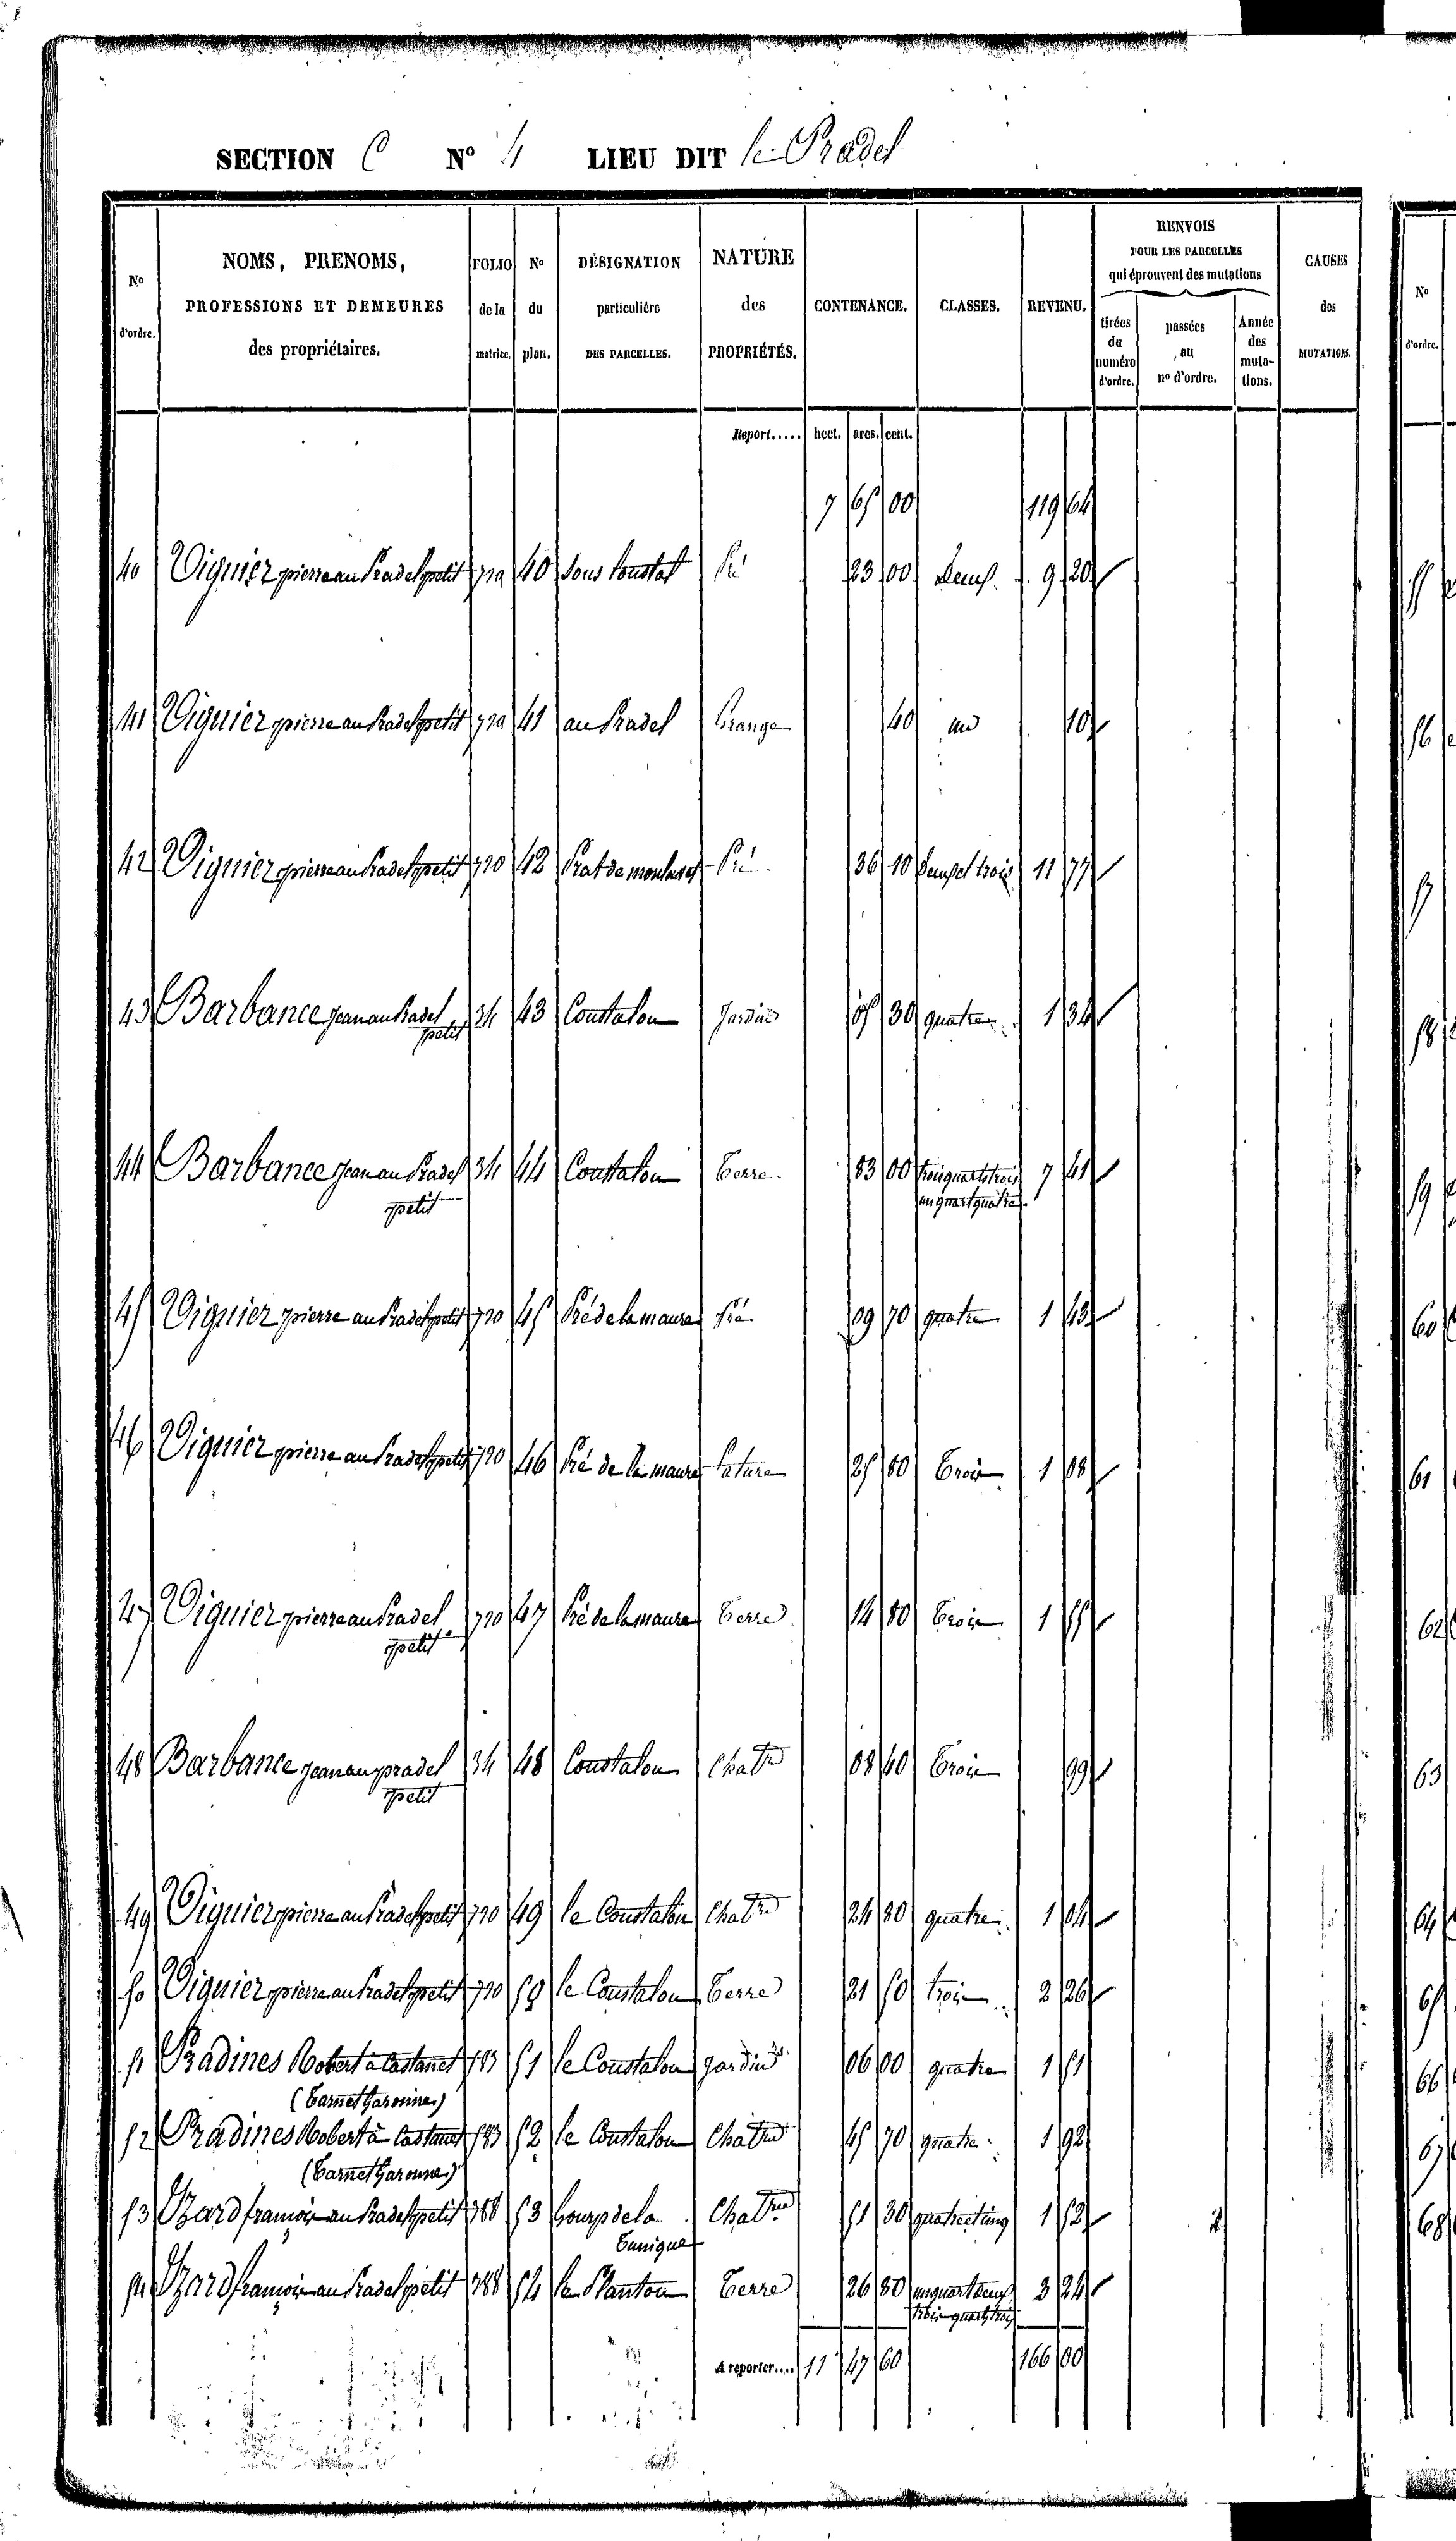 SECTION C N° 4 LIEU DIT le Pradel
N° d'ordre. NOMS, PRENOMS, PROFESSIONS ET DEMEURES des propriétaires. FOLIO de la matrice. N° du plan. DÉSIGNATION particulière DES PARCELLES. NATURE des PROPRIÉTÉS. CONTENANCE. CLASSES. REVENU. RENVOIS POUR LES PARCELLES qui éprouvent des mutations tirées du numéro d'ordre. passées au n° d'ordre. Année des mutations. CAUSES des MUTATIONS.
Report..... hect. ares. cent.
7 65 00 119 64
40 Viguier pierre au Pradel petit 720 40 Sous Coustal Pré 23 00 deux 9 20
41 Viguier pierre au Pradel petit 720 41 au Pradel Grange 40 un 10
42 Viguier pierre au Pradel petit 720 42 Prat de Pré 36 10 deux et trois 11 77
43 Barbance Jean au Pradel petit 34 43 Coustalou Jardin 05 30 quatre 1 34
44 Barbance Jean au Pradel petit 34 44 Coustalou Terre 83 00 trois quarts trois un quart quatre 7 41
45 Viguier pierre au Pradel petit 720 45 Pré de la maure Pré 09 70 quatre 1 43
46 Viguier pierre au Pradel petit 720 46 Pré de la maure Pature 25 80 Trois 1 08
47 Viguier pierre au Pradel petit 720 47 Pré de la maure Terre 14 80 Trois 1 55
48 Barbance Jean au pradel petit 34 48 Coustalou Chatrie 08 40 Trois 99
49 Viguier pierre au Pradel petit 720 49 le Coustalou Chatrie 24 80 quatre 1 04
50 Viguier pierre au Pradel petit 720 50 le Coustalou Terre 21 50 trois 2 26
51 Pradines Robert à Castanet 583 51 le Coustalou Jardin 06 00 quatre 1 51
(Tarn et Garonne)
52 Pradines Robert à Castanet 583 52 le Coustalou Chatrie 45 70 quatre 1 92
(Tarn et Garonne)
53 Izard françois au Pradel petit 388 53 Gourp de la Tunique Chatrie 51 30 quatre et cinq 1 52
54 Izard françois au Pradel petit 388 54 le Plantou Terre 26 80 un quart deux trois quarts trois 3 24
A reporter.... 11 47 60 166 00
N° d'ordre.
55
56
57
58
59
60
61
62
63
64
65
66
67
68